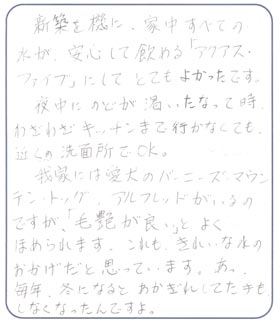 新築を機に、家中すべての
水が、安心して飲める「アクアス・
ファイブ」にしてとてもよかったです。
夜中にのどが渇いたなって時、
わざわざキッチンまで行かなくても、
近くの洗面所でOK。
我家には愛犬のバーニーズ・マウン
テン・ドッグ、アルフレッドがいるの
ですが、「毛艶が良い」とよく
ほめられます。これも、きれいな水の
おかげだと思っています。あっ、
毎年、冬になるとあかぎれしてた手も
しなくなったんですよ。